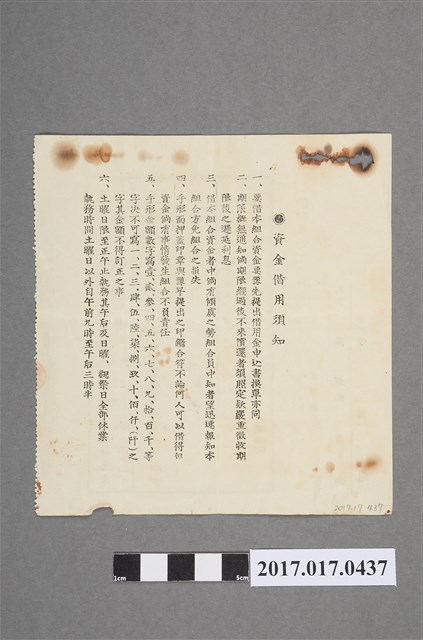 資金借用須知
一、要借本組合資金要豫先提出借用金申込書換單亦同
二、期限無通知倘期限經過後不來償還者須照定欵嚴重徵收期
限後之遲延利息
三、借本組合資金者中倘有傾危之勢組合員中知者望迅速報知本
組合方免組合之損失
四、手形面押蓋印章與豫早提出之印鑑合符不論何人可以借得但
資金倘有事情發生組合不負責任
五、手形金額數字寫壹、貳、叁、四、五、六、七、八、九、拾、百、千、等
字決不可寫一、二、三、肆、伍、陸、柒、捌、玖、十、佰、仟、(阡)之
字其金額不得訂正之事
六、土曜日限至正午止執務其午后及日曜、祝祭日全部休業
執務時間土曜日以外自午前九時至午后三時半
2017.17.437
1cm
5cm
2017.017.0437